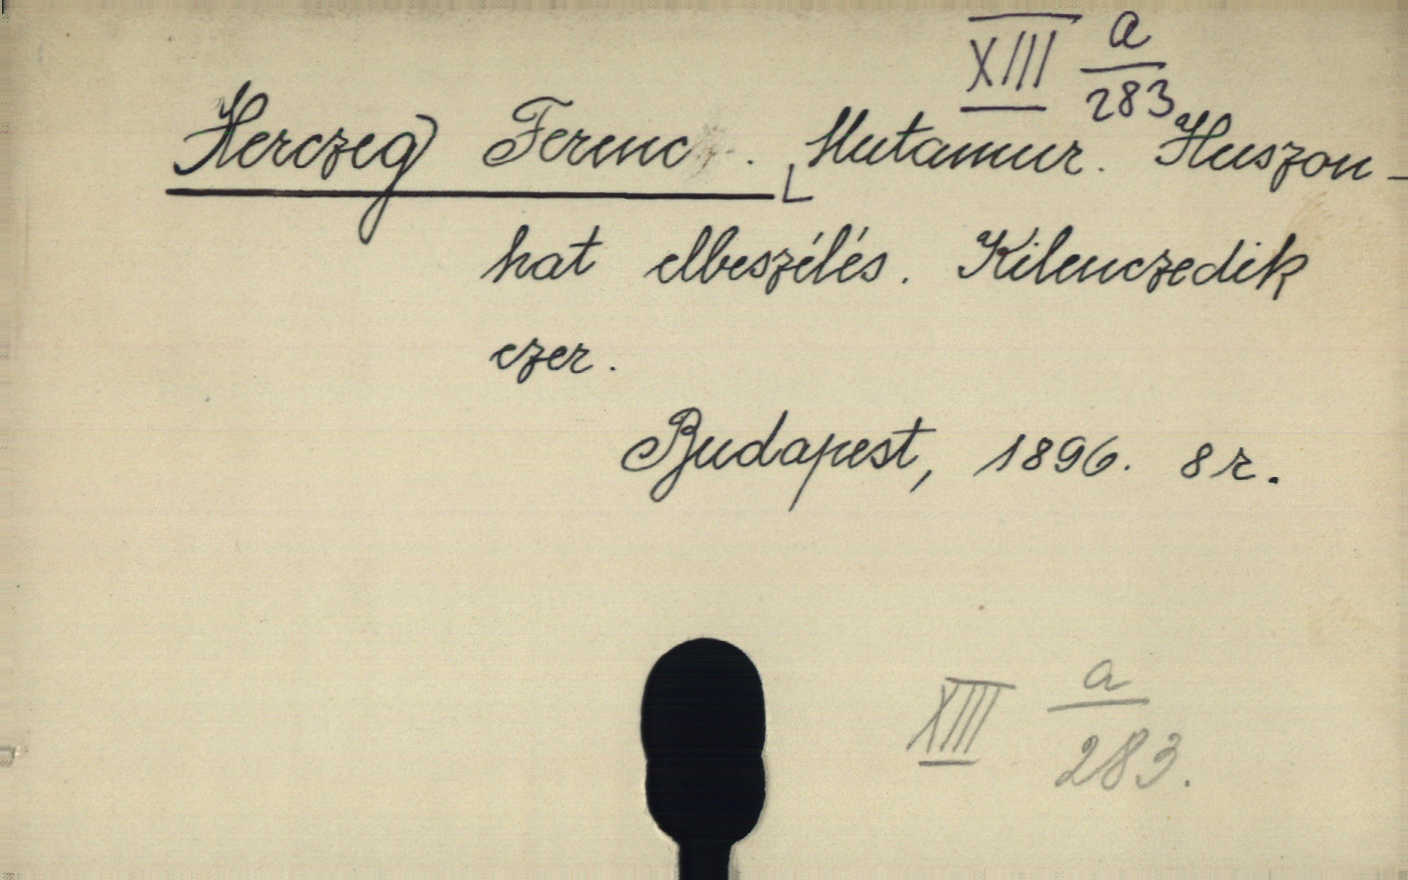 XIII a/283
Herczeg Ferenc. Mutamur. Huszon-
hat elbeszélés. Kilenczedik
ezer.
Budapest, 1896. 8 r.
XIII a/283.